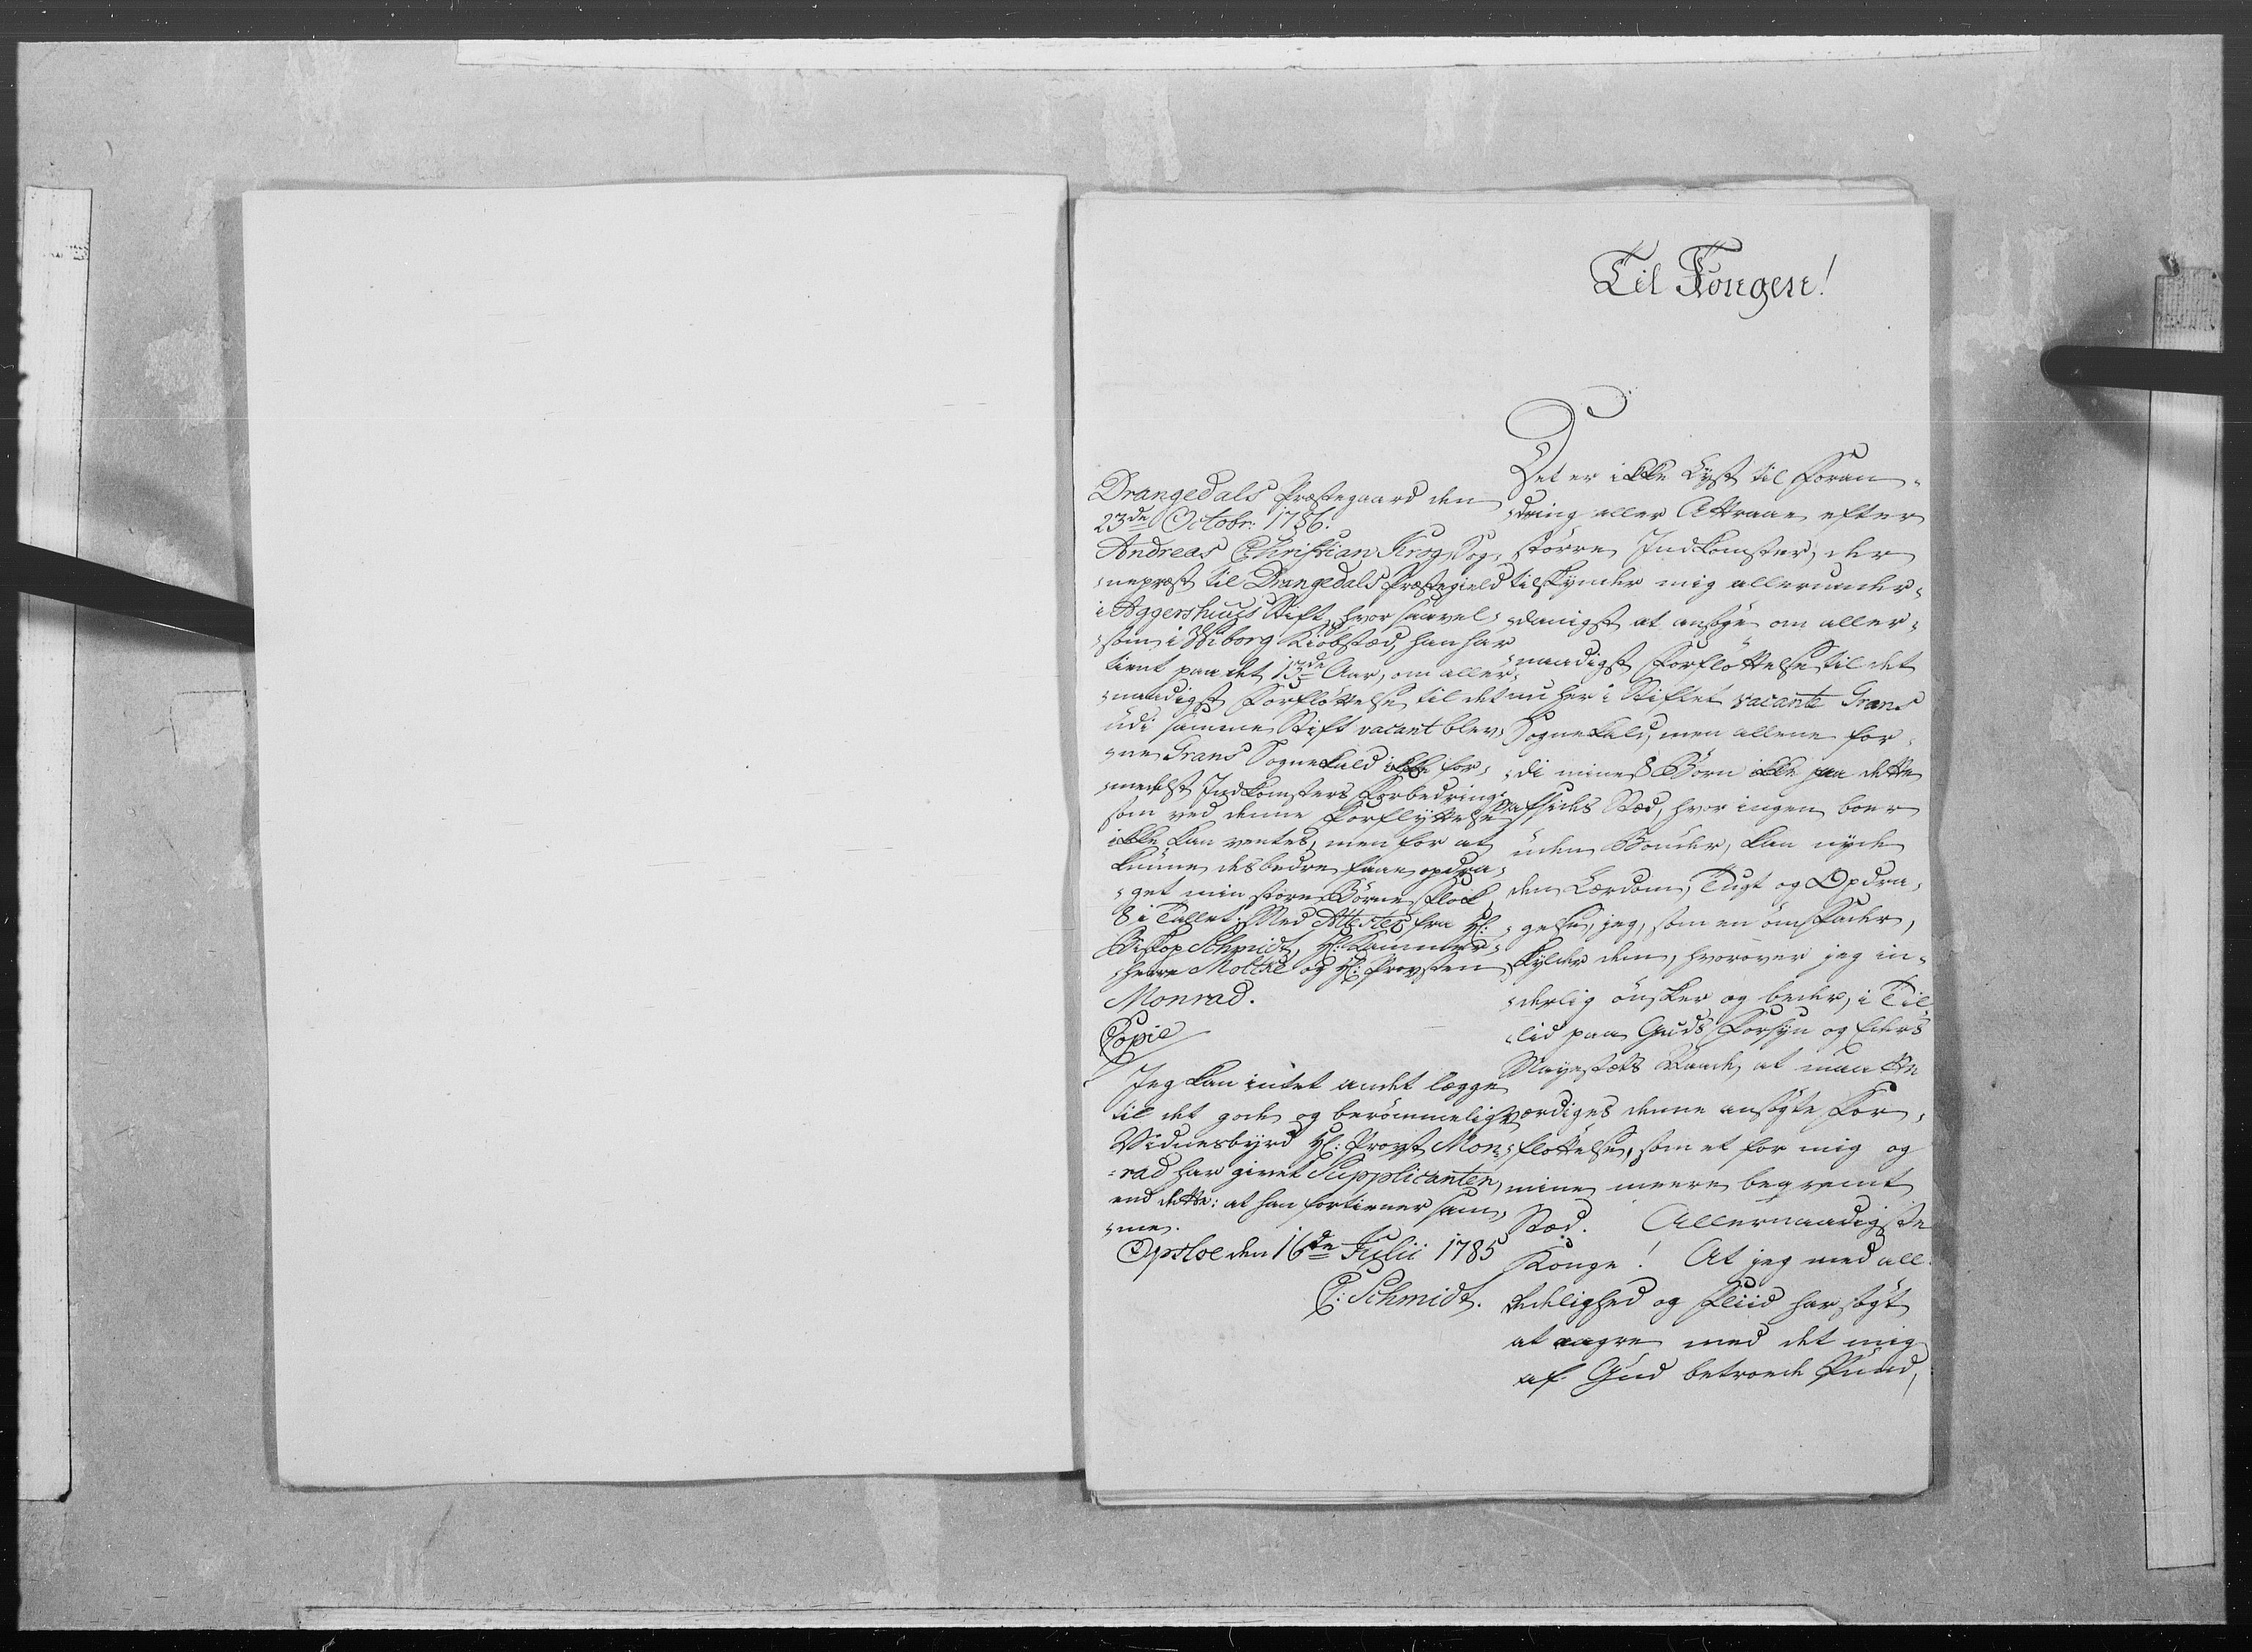 Til Kongen!
Drangedals Præstegaard den
23de Octobr: 1786.
Andreas Christian Krog, Sog,
,nepræst til Drangedals Præstegield
i Aggershuus Stift, hvor saavel,
,som i Wiborg Kiøbstæd, han har
tient paa det 13de Aar, om aller,
,naadigst Forfløttelse til det
udi samme Stift vacant blev,
,ne Grans Sognekald ikke for,
,medelst Indkomsters Forbedring,
som ved denne Forflyttelse
ikke kan ventes, men for at
kunne desbedre faae opdra,
,get min store Børne Flok,
8 i Tallet. Med Attester fra Hr:
Biskop Schmidt, Hr: Kammer,
,herre Moltke og Hr: Provsten
Monrad.
Copie
Jeg kan intet andet lægge
til det gode og berømmelige
Vidnesbyrd Hr: Provst Mon,
=rad har givet Supplicanten,
end dette: at han fortiener sam,
,me.
Opsloe den 16de Julii 1785
C: Schmidt.
Det er ikke Lyst til Foran,
,dring eller Attraae efter
større Indkomster, der
tilskynder mig allerunder,
,danigst at ansøge om aller,
,naadigst Forfløttelse til det
nu her i Stiftet vacante Grans
Sognekald, men allene for,
,di mine 8 Børn ikke paa dette
afsides Stæd, hvor ingen boer
uden Bønder, kan nyde
den Lærdom, Tugt og Opdra,
,gelse, jeg, som en øm Fader,
skylder dem, hvorover jeg in,
,derlig ønsker og beder, i Til,
,lid paa Guds Forsyn og Eders
Mayestæts Naade, at maatte
værdiges denne ansøgte For,
,fløttelse, som et for mig og
mine meere beqvemt
Stæd. Allernaadigste
Konge! At jeg med all
Redelighed og Fliid har søgt
at aagre med det mig
af Gud betroede Pund,